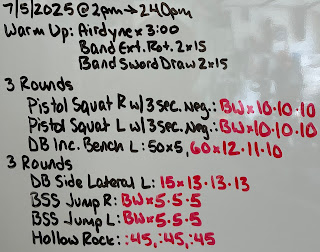 7/5/2025 @ 2pm → 240pm
Warm Up: Airdyne x 3:00
Band Ext. Rot. 2x15
Band Sword Draw 2x15
3 Rounds
Pistol Squat R w/ 3 sec. Neg.: BW x 10 · 10 · 10
Pistol Squat L w/ 3 sec. Neg.: BW x 10 · 10 · 10
DB Inc. Bench L: 50x5, 60 x 12 · 11 · 10
3 Rounds
DB Side Lateral L: 15 x 13 · 13 · 13
BSS Jump R: BW x 5 · 5 · 5
BSS Jump L: BW x 5 · 5 · 5
Hollow Rock: :45, :45, :45